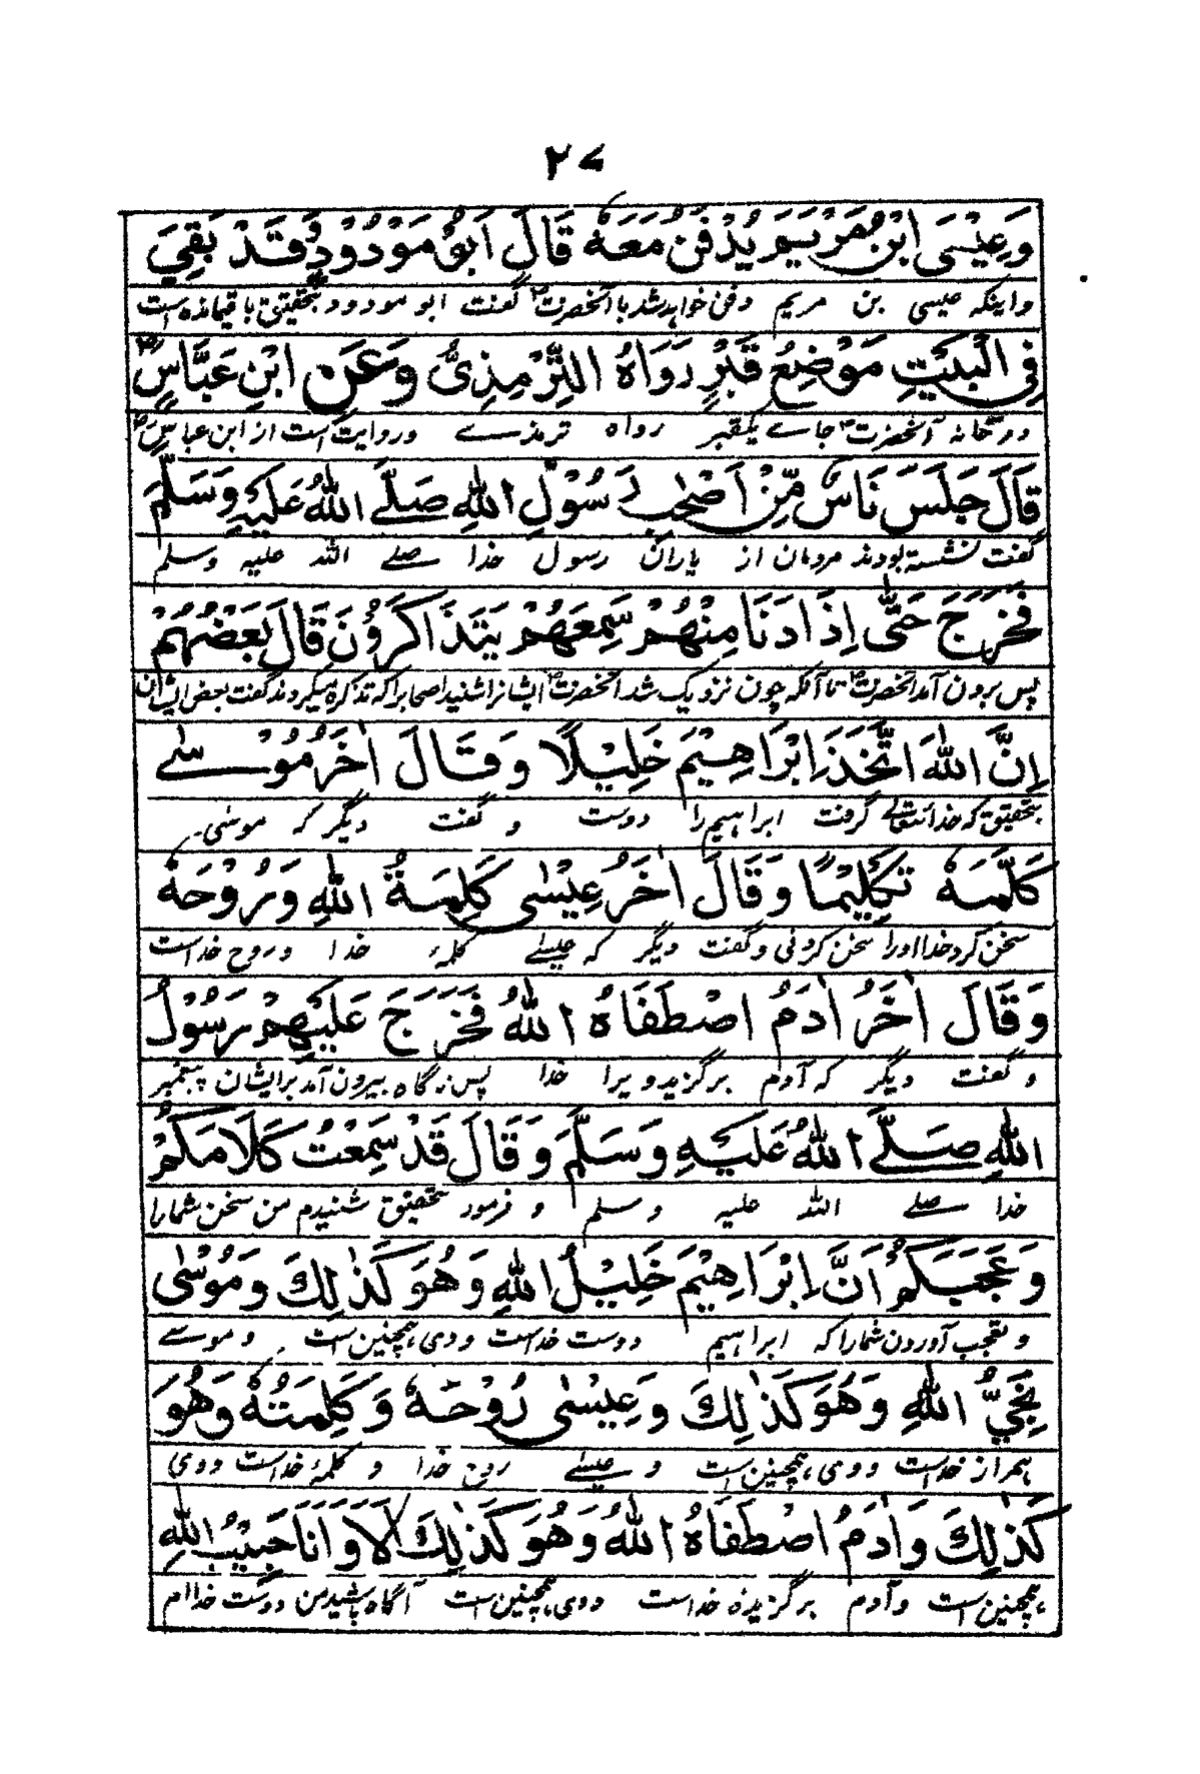 ۲۷
وَعِيْسَى ابْنُ مَرْيَمَ يُدْفَنُ مَعَهٗ قَالَ اَبُوْ مَوْدُوْدٍ وَّقَدْ بَقِيَ
واینکه عیسی بن مریم دفن خواهد شد با آنحضرت گفت ابو مودود بتحقیق باقیمانده است
فِي الْبَيْتِ مَوْضِعُ قَبْرٍ رَوَاهُ التِّرْمِذِيُّ وَعَنِ ابْنِ عَبَّاسٍ
در خانه آنحضرت جاے یکقبر رواه ترمذے وروایت است از ابن عباس
قَالَ جَلَسَ نَاسٌ مِّنْ اَصْحٰبِ رَسُوْلِ اللهِ صَلَّے اللهُ عَلَيْهِ وَسَلَّمَ
گفت نشسته بودند مردمان از یاران رسول خدا صلے الله علیه وسلم
فَخَرَجَ حَتّٰى اِذَا دَنَا مِنْهُمْ سَمِعَهُمْ يَتَذَاكَرُوْنَ قَالَ بَعْضُهُمْ
پس برون آمد آنحضرت تا آنکه چون نزدیک شد آنحضرت ایشانرا شنید اصحابرا که تذکره میکردند گفت بعض ایشان
اِنَّ اللهَ اتَّخَذَ اِبْرَاهِيْمَ خَلِيْلًا وَقَالَ اٰخَرُ مُوْسٰے
بتحقیق که خدائتعالے گرفت ابراهیم را دوست و گفت دیگر که موسٰی
كَلَّمَهٗ تَكْلِيْمًا وَقَالَ اٰخَرُ عِيْسٰى كَلِمَةُ اللهِ وَرُوْحُهٗ
سخن کرد خدا اورا سخن کردنی وگفت دیگر که عیسے کلمهٔ خدا وروح خداست
وَقَالَ اٰخَرُ اٰدَمُ اصْطَفَاهُ اللهُ فَخَرَجَ عَلَيْهِمْ رَسُوْلُ
و گفت دیگر که آدم برگزید ویرا خدا پس نگاه بیرون آمد برایشان پیغمبر
اللهِ صَلَّے اللهُ عَلَيْهِ وَسَلَّمَ وَقَالَ قَدْ سَمِعْتُ كَلَامَكُمْ
خدا صلے الله علیه وسلم و فرمود بتحقیق شنیدم من سخن شمارا
وَعَجَبَكُمْ اَنَّ اِبْرَاهِيْمَ خَلِيْلُ اللهِ وَهُوَ كَذٰلِكَ وَمُوْسٰى
و تعجب آوردن شمارا که ابراهیم دوست خداست و وی همچنین است و موسے
نَجِيُّ اللهِ وَهُوَ كَذٰلِكَ وَعِيْسٰى رُوْحُهٗ وَكَلِمَتُهٗ وَهُوَ
همراز خداست و وی همچنین است و عیسے روح خدا و کلمهٔ خداست و وی
كَذٰلِكَ وَاٰدَمُ اصْطَفَاهُ اللهُ وَهُوَ كَذٰلِكَ اَلَا وَاَنَا حَبِيْبُ اللهِ
همچنین است وآدم برگزیدهٔ خداست و وی همچنین است آگاه باشید من دوست خداام